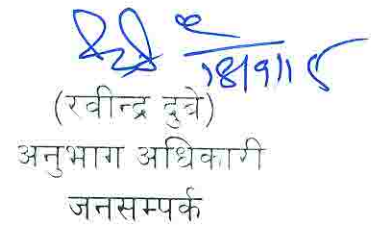 (रवीन्द्र दुबे)
अनुभाग अधिकारी
जनसम्पर्क